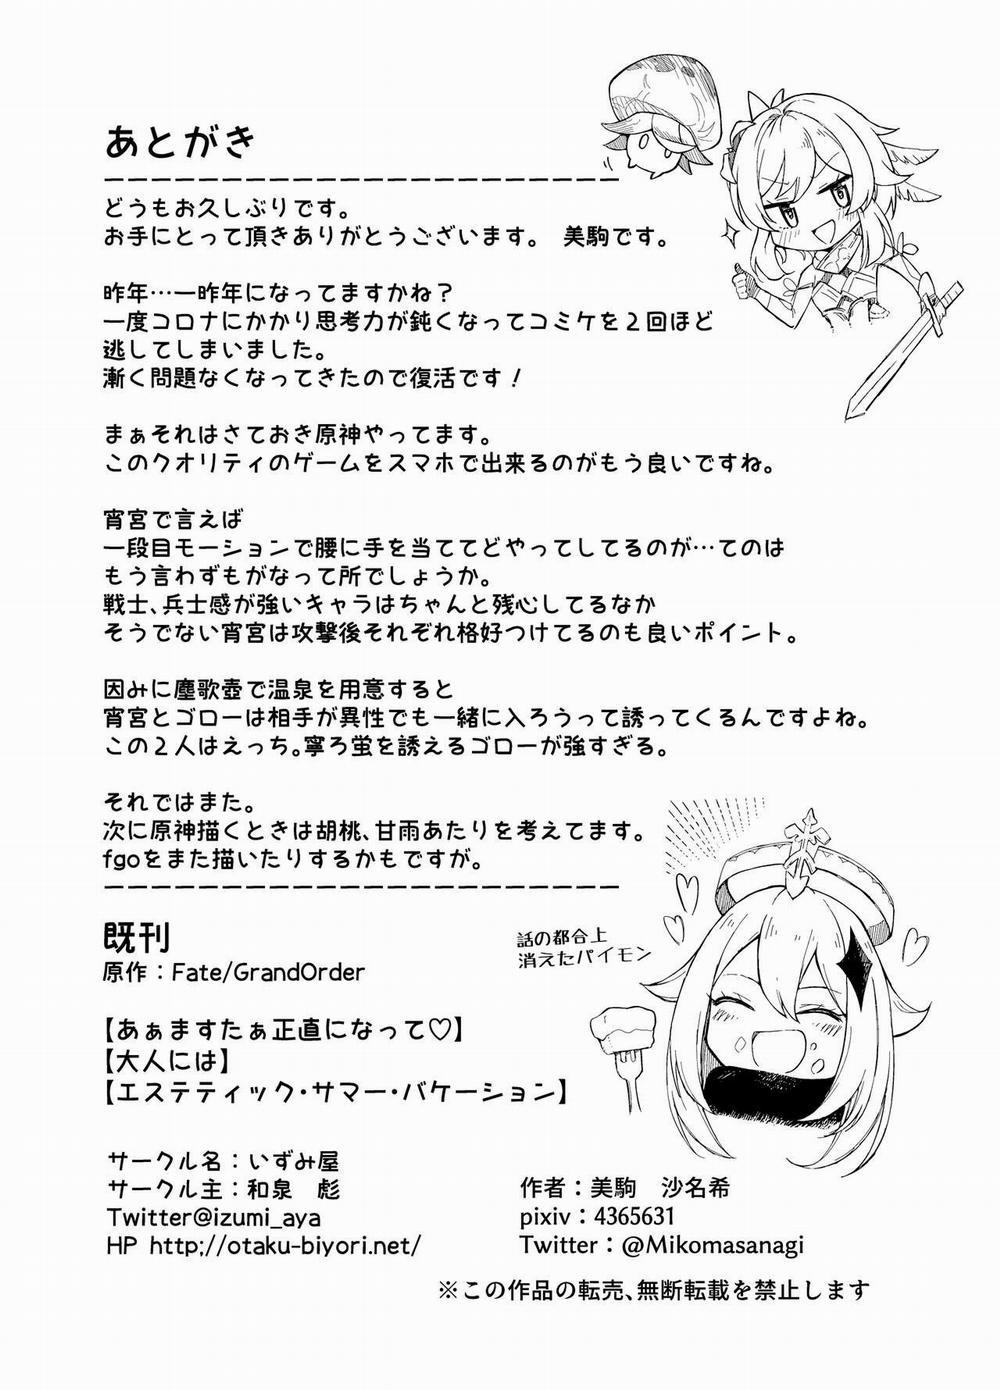 あとがき
どうもお久しぶりです。
お手にとって頂きありがとうございます。 美駒です。
昨年…一昨年になってますかね？
一度コロナにかかり思考力が鈍くなってコミケを２回ほど
逃してしまいました。
漸く問題なくなってきたので復活です！
まぁそれはさておき原神やってます。
このクオリティのゲームをスマホで出来るのがもう良いですね。
宵宮で言えば
一段目モーションで腰に手を当ててどやってしてるのが…てのは
もう言わずもがなって所でしょうか。
戦士、兵士感が強いキャラはちゃんと残心してるなか
そうでない宵宮は攻撃後それぞれ格好つけてるのも良いポイント。
因みに塵歌壺で温泉を用意すると
宵宮とゴローは相手が異性でも一緒に入ろうって誘ってくるんですよね。
この２人はえっち。寧ろ蛍を誘えるゴローが強すぎる。
それではまた。
次に原神描くときは胡桃、甘雨あたりを考えてます。
fgoをまた描いたりするかもですが。
既刊
原作：Fate/GrandOrder
話の都合上
消えたパイモン
【あぁますたぁ正直になって♡】
【大人には】
【エステティック・サマー・バケーション】
サークル名：いずみ屋
サークル主：和泉　彪
Twitter@izumi_aya
HP http;//otaku-biyori.net/
作者：美駒　沙名希
pixiv：4365631
Twitter：@Mikomasanagi
※この作品の転売、無断転載を禁止します